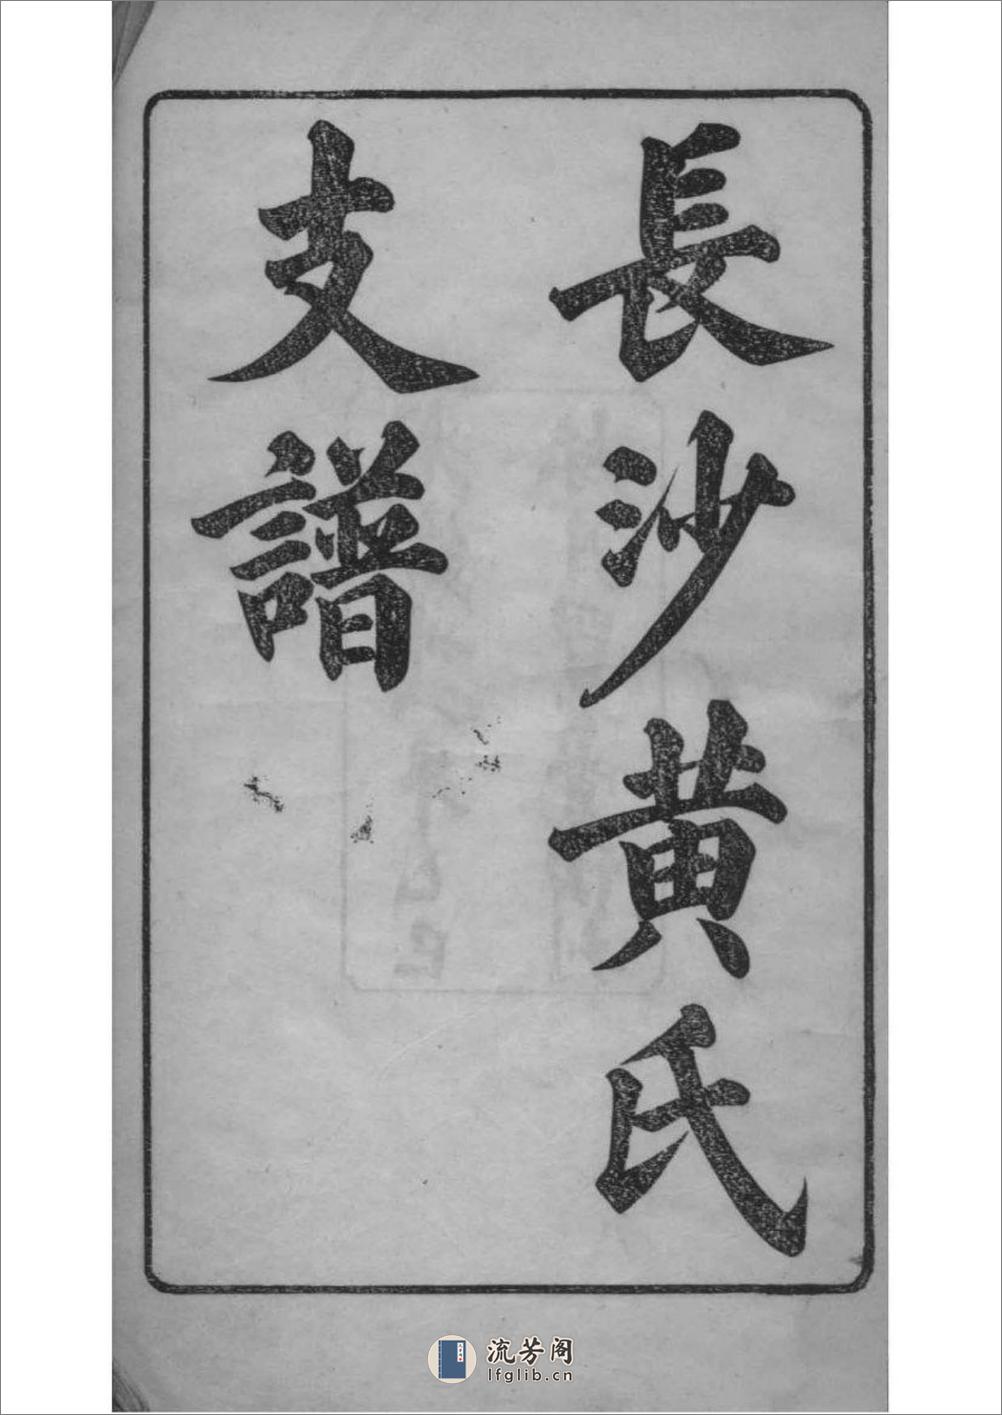 長沙黄氏
支譜
流芳阁
lfglib.cn